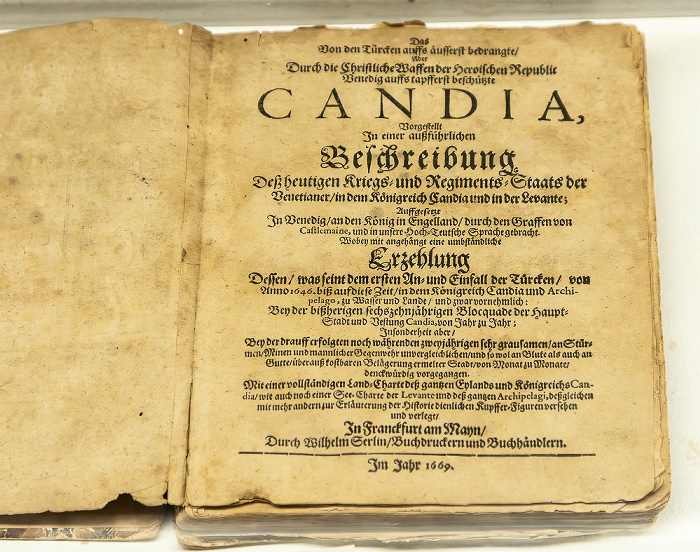 Das
Von den Türcken auffs äusserst bedrangte/
Aber
Durch die Christliche Waffen der Heroischen Republic
Venedig auffs tapfferst beschützte
CANDIA,
Vorgestellt
In einer außführlichen
Beschreibung
Deß heutigen Kriegs- und Regiments-Staats der
Venetianer/ in dem Königreich Candia und in der Levante;
Auffgesetzt
In Venedig/ an den König in Engelland/ durch den Graffen von
Castlemaine, und in unsere Hoch-Teutsche Sprache gebracht.
Wobey mit angehängt eine umbständliche
Erzehlung
Dessen/ was seint dem ersten An- und Einfall der Türcken/ von
Anno 1646. biß auf diese Zeit/ in dem Königreich Candia und Archi-
pelago, zu Wasser und Lande/ und zwar vornehmlich:
Bey der bißherigen sechszehnjährigen Blocquade der Haupt-
Stadt und Vestung Candia, von Jahr zu Jahr;
Insonderheit aber/
Bey der drauff erfolgten noch währenden zweyjährigen sehr grausamen/ an Stür-
men/ Minen und mannlicher Gegenwehr unvergleichlichen/ und so wol an Blute als auch an
Gutte/ überauß kostbaren Belägerung ermelter Stadt/ von Monat zu Monate/
denckwürdig vorgegangen.
Mit einer vollständigen Land-Charte deß gantzen Eylands und Königreichs Can-
dia/ wie auch noch einer See-Charte der Levante und deß gantzen Archipelagi, deßgleichen
mit mehr andern zur Erläuterung der Historie dienlichen Kupffer-Figuren versehen
und verlegt/
In Franckfurt am Mayn/
Durch Wilhelm Serlin/ Buchdruckern und Buchhändlern.
Im Jahr 1669.